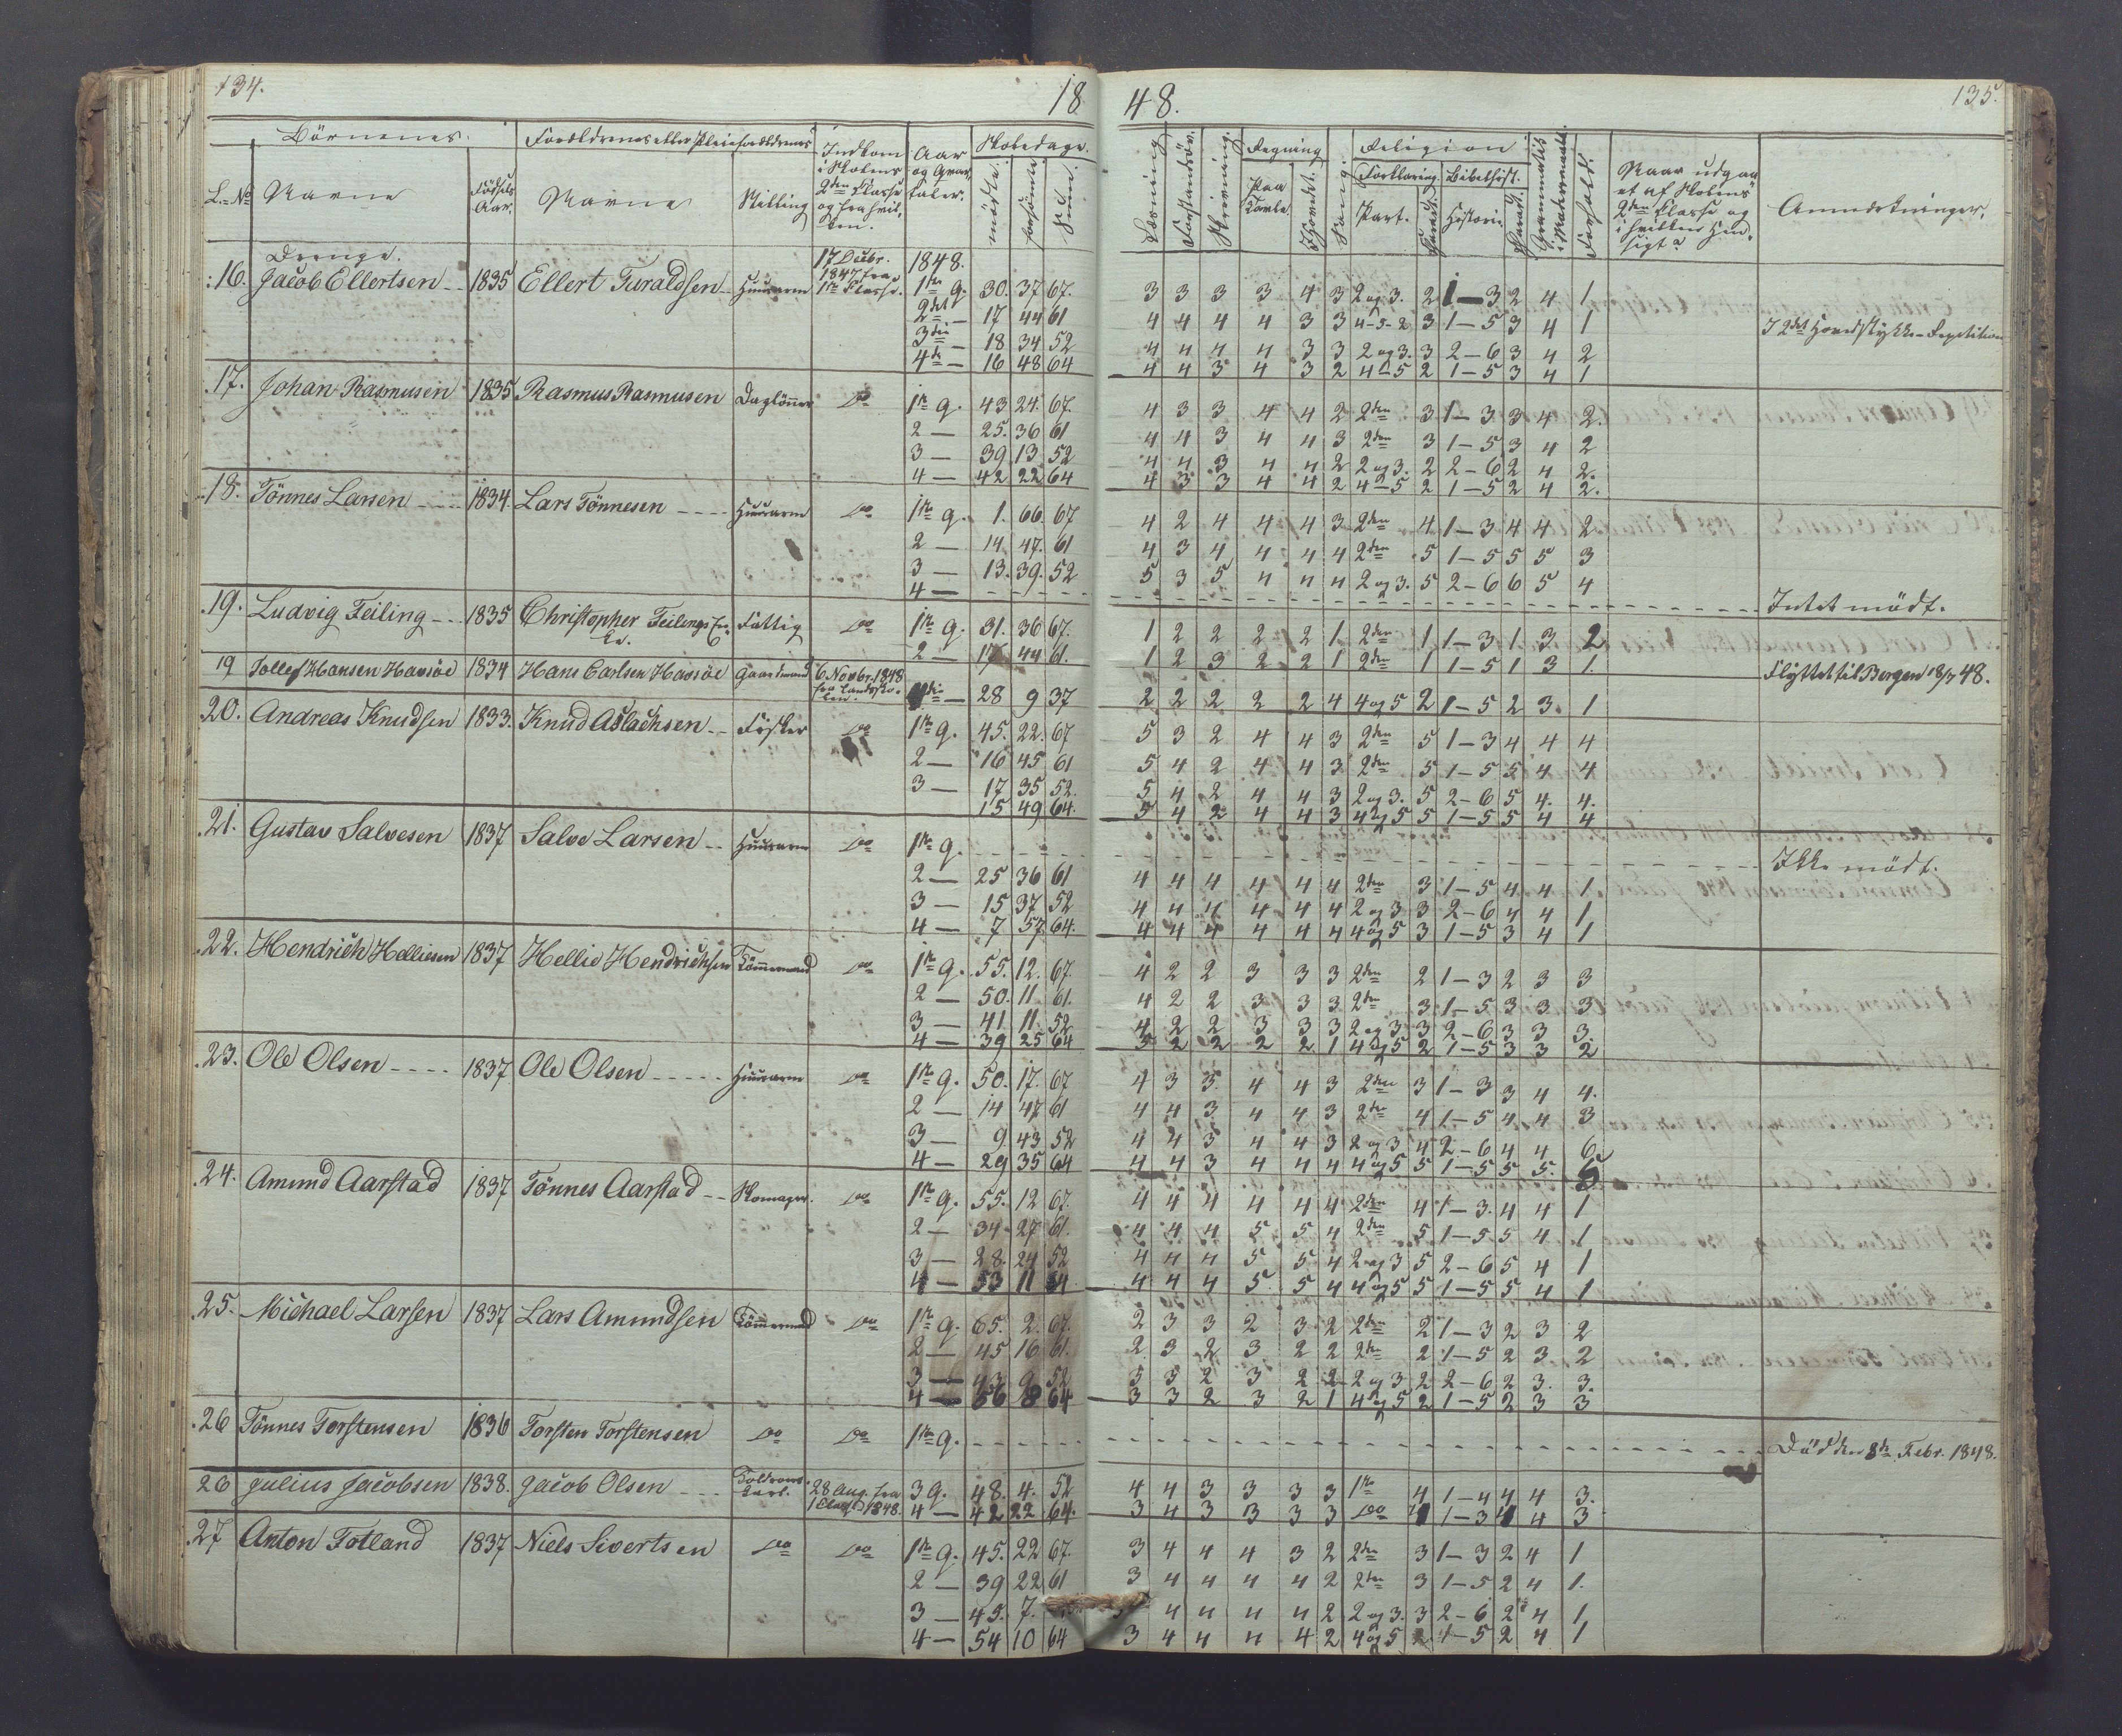 134.
18
48.
135.
Börnenes. Forældrenes eller Pleieforældrenes Indkom i Skolens 2den Klasse og fra hvilken. Aar og Qvartaler. Skoledage. Læsning Skrivning. Regning Sang. Religion Forhold. Naar udgaaet af Skolens 2den Klasse og i hvilken Hensigt? Anmærkninger.
L. No Navne Födsels Aar. Navne Stilling mödte. forsömte Sum. Paa Tavle. Hovedet. Forklaring. Bibelhist.
Part. Karakt. Historie Karakt.
Drenge. 17 Decbr. 1848.
16. Jacob Ellertsen 1835 Ellert Turaldsen Huusarm 1847 fra 1ste Klasse. 1ste q. 30. 37 67. 3 3 3 3 4 3 2 og 3. 2 1-3 2 4 1
2det - 17 44 61 4 4 4 4 3 3 4-5-2 3 1-5 3 4 1 I 2det Hovedstykke-Repetition
3die - 18 34 52 4 4 4 4 3 3 2 og 3. 3 2-6 3 4 2
4de - 16 48 64 4 4 3 4 3 2 4-5 2 1-5 3 4 1
17. Johan Rasmusen 1835 Rasmus Rasmusen Daglönner do 1ste q. 43 24. 67. 4 3 3 4 4 2 2den 3 1-3 3 4 2.
2 - 25. 36 61 4 4 3 4 4 3 2den 3 1-5 3 4 2
3 - 39 13 52 4 4 3 4 4 2 2 og 3. 2 2-6 2 4 2.
4 - 42 22 64 4 3 3 4 4 2 4-5 2 1-5 2 4 2.
18. Tönnes Larsen 1834. Lars Tönnesen Huusarm do 1ste q. 1. 66. 67 4 2 4 4 4 3 2den 4 1-3 4 4 2
2 - 14 47. 61 4 3 4 4 4 4 2den 5 1-5 5 5 3
3 - 13. 39. 52 5 3 5 4 4 4 2 og 3. 5 2-6 6 5 4
4 - Intet mödt.
19. Ludvig Feiling 1835 Christopher Feilings Enke. Fattig do 1ste q. 31. 36 67. 1 2 2 2 2 1 2den 1 1-3 1 3 2
2 - 17 44 61. 1 2 3 2 2 1 2den 1 1-5 1 3 1. Flyttet til Bergen 18/7 48.
19 Tollef Hansen Havsöe 1834 Hans Carlsen Havsöe Gaardmand 6 Novbr. 1848 fra Landsskolen. 28 9 37 2 2 2 2 2 4 4 og 5 2 1-5 2 3. 1
20. Andreas Knudsen 1833. Knud Aslachsen Fisker do 1ste q. 45. 22. 67 5 3 2 4 4 3 2den 5 1-3 4 4 4
2 - 16 45 61 5 4 2 4 4 3 2den 5 1-5 5 4 4
3 - 17 35 52. 5 4 2 4 4 3 2 og 3. 5 2-6 5 4. 4.
15 49 64. 5 4 2 4 4 3 4 og 5 5 1-5 5 4 4
21. Gustav Salvesen 1837 Salve Larsen Huusarm do 1ste q. Ikke mödt.
2 - 25 36 61 4 4 4 4 4 4 2den 3 1-5 4 4 1
3 - 15 37 52 4 4 4 4 4 4 2 og 3 3 2-6 4 4 1
4 - 7 57 64. 4 4 4 4 4 4 4 og 5 3 1-5 3 4 1
22. Hendrich Helliesen 1837 Hellie Hendrichsen Tömmermand do 1ste q. 55. 12. 67. 4 2 2 3 3 3 2den 2 1-3 2 3 3
2 - 50. 11 61. 4 2 2 3 3 3 2den 3 1-5 3 3 3
3 - 41 11. 52 4 2 2 3 3 3 2 og 3 3 2-6 3 3 3.
4 - 39 25 64 3 2 2 2 2 1 4 og 5 2 1-5 3 3 2
23. Ole Olsen 1837 Ole Olsen Huusarm do 1ste q. 50. 17. 67 4 3 3. 4 4 3 2den 3 1-3 3 4 4.
2 - 14 47 61 4 4 3 4 4 3 2den 4 1-5 4 4 3
3 - 9 43 52 4 4 3 4 4 3 2 og 3 4 2-6 4 4 6
4 - 29 35 64 4 4 3 4 4 4 4 og 5 5 1-5 5 5.
24. Amund Aarstad 1837 Tönnes Aarstad Skomager. do 1ste q. 55. 12 67. 4 4 4 4 4 4 2den 4 1-3. 4 4 1
2 - 34 27 61. 4 4 4 5 5 4 2den 5 1-5 5 4 1
3 - 28. 24 52 4 4 4 5 5 4 2 og 3 5 2-6 5 4 1
4 - 53 11 64 4 4 4 5. 5 4 4 og 5 5 1-5 5 4 1
25. Michael Larsen 1837 Lars Amundsen Tömmermand do 1ste q. 65. 2. 67. 2 3 3 2 3 2 2den 2 1-3 2 3 2
2 - 45 16 61. 2 3 2 3 2 2 2den 2 1-5 2 3 2
3 - 43 9 52 3 3 2 3 2 2 2 og 3 2 2-6 2 3. 3.
4 - 56 8 64 3 3 2 3 2 1 4 og 5 2 1-5 2 3 3
26 Tönnes Torstensen 1836 Torsten Torstensen do do 1ste q. Död den 8de Febr. 1848.
26 Julius Jacobsen 1838. Jacob Olsen 28 Aug. fra 1 Klasse 1848. 3 q. 48. 4. 52 4 4 3 3 3 3 1ste 4 1-4 4 4 3.
4 - 42 22 64. 3 4 3 3 3 3 do 4 1-3 4 4 3
27 Anton Totland 1837 Niels Sivertsen do do 1ste q. 45. 22 67. 3 4 4 4 3 2 2den 3 1-3 2 4 1
2 - 39 22 61 3 4 4 4 4 2 2den 3 1-5 2 4 1.
3 - 45. 7. 4 4 4 4 2 2 og 3. 3 2-6 2 4 1
4 - 54 10 64 3 4 4 4 4 2 4 og 5 2 1-5 2 4 1